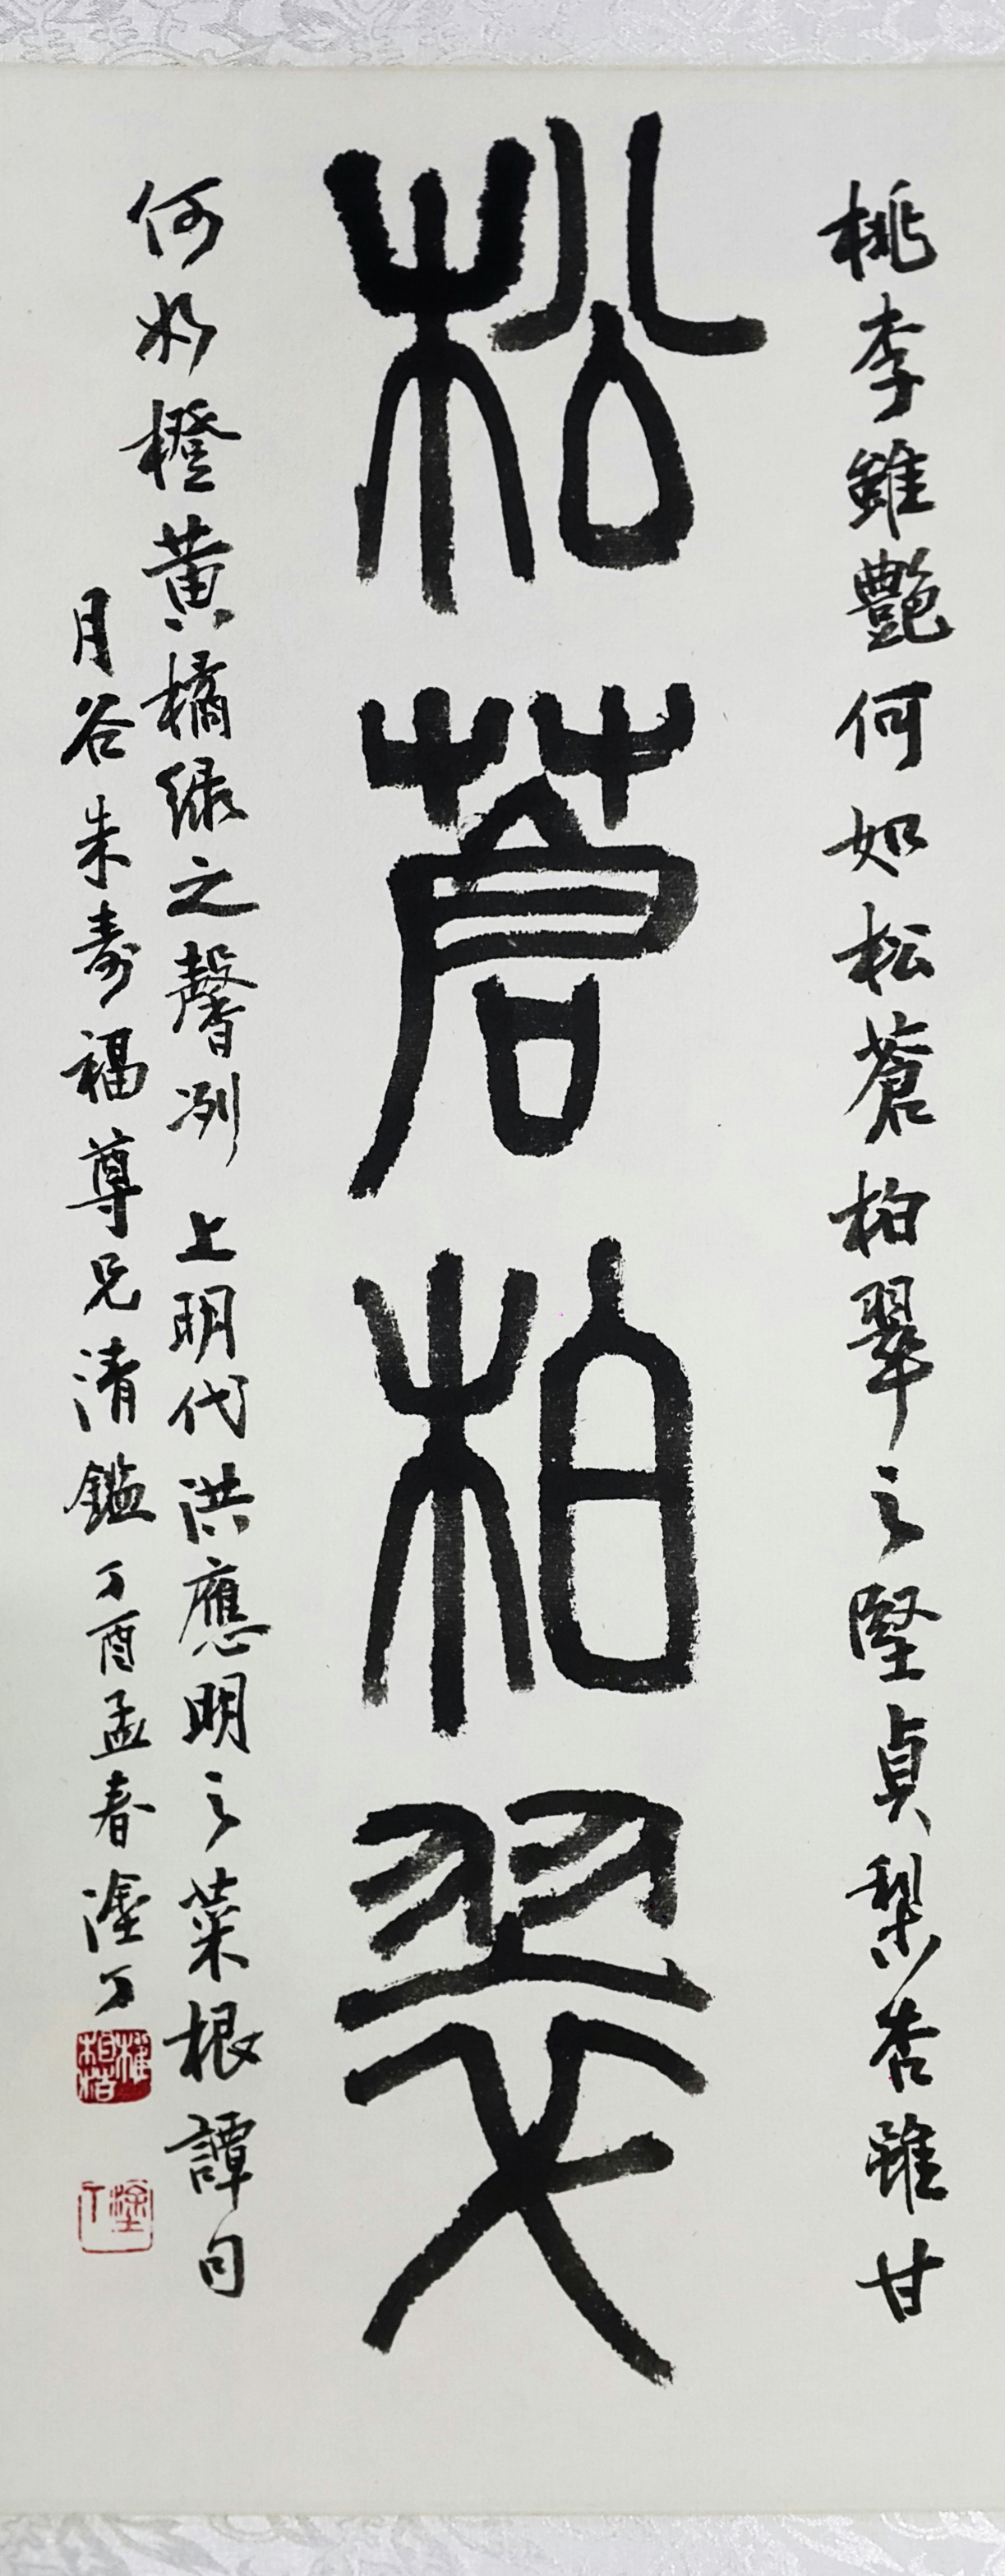 桃李雖艷何如松蒼柏翠之堅貞梨杏雖甘
松蒼柏翠
何如橙黃橘綠之馨冽 上明代洪應明之菜根譚句
月谷朱壽福尊兄清鑑 丁酉孟春塗丁
塗丁